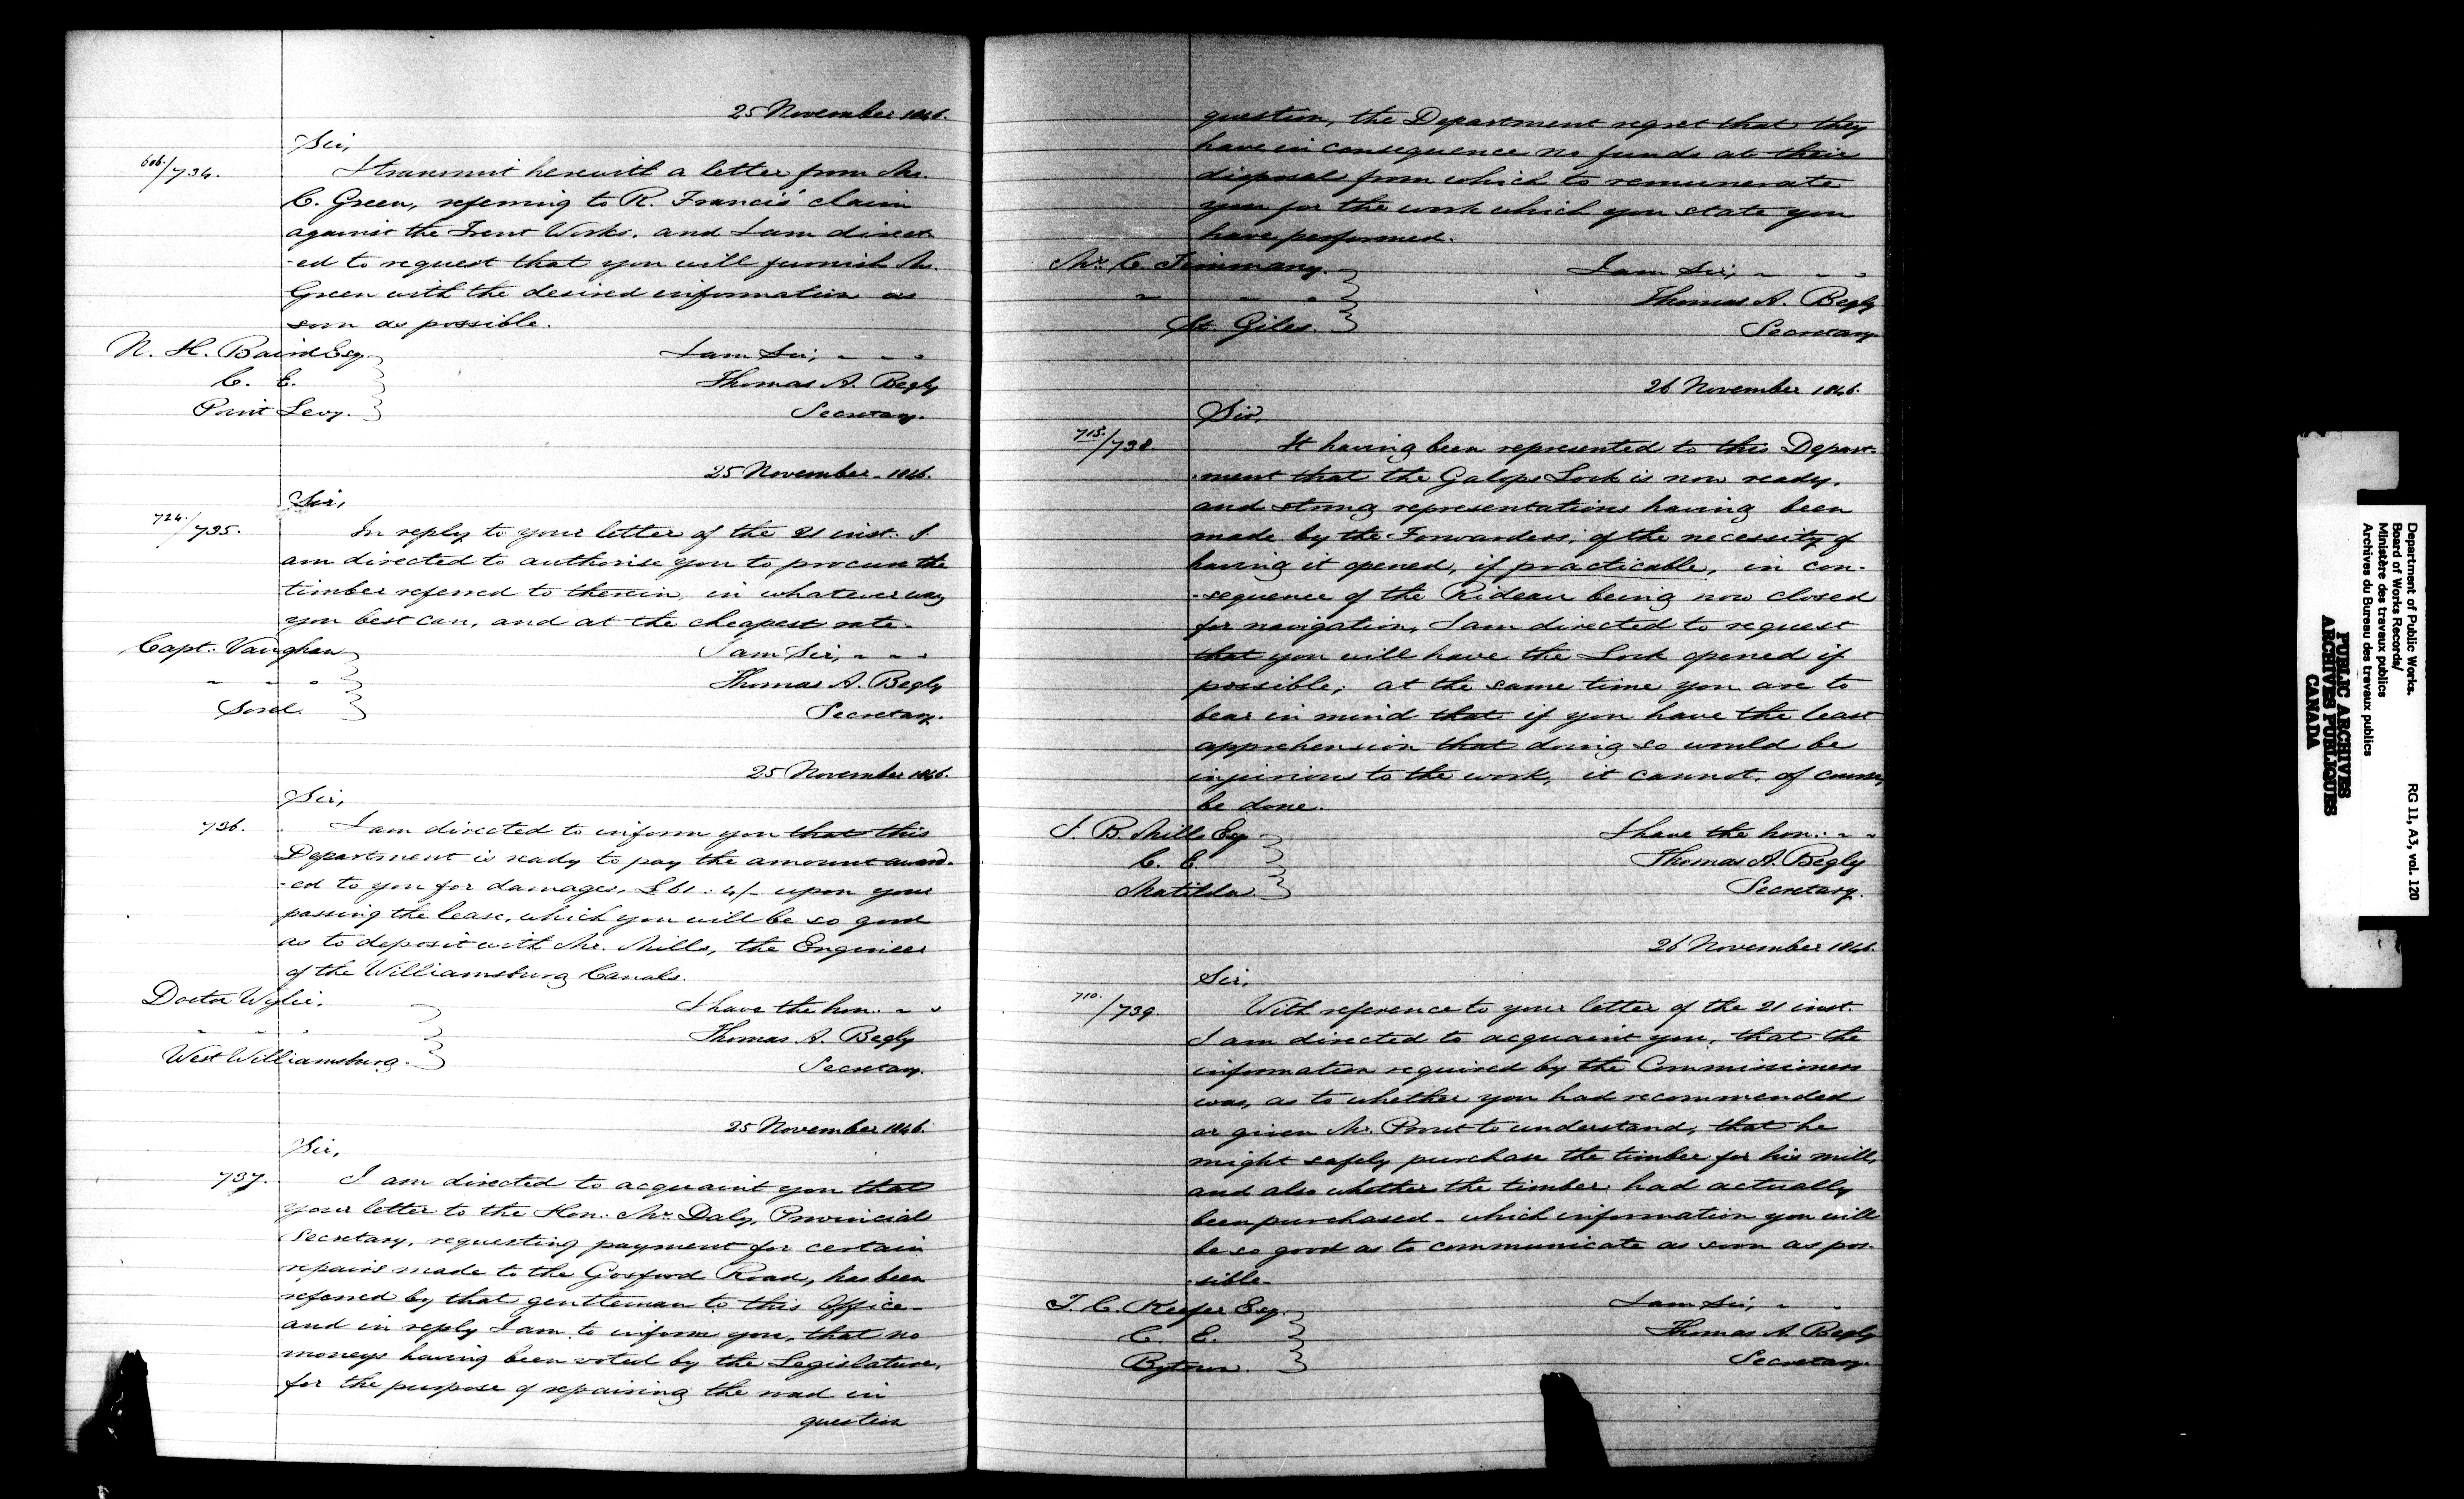 25 November 1846.
Sir,
606./734. I transmit herewith a letter from Mr.
C. Green, referring to R. Francis' claim
against the Trent Works. and I am direct-
-ed to request that you will furnish Mr.
Green with the desired information as
soon as possible.
N. H. Baird Esq. I am Sir, - - -
C. E. Thomas A. Begly
Point Levy. Secretary.
25 November. 1846.
Sir,
724./735. In reply to your letter of the 21 inst. I
am directed to authorise you to procure the
timber referred to therein, in whatever way
you best can, and at the cheapest rate.
Capt. Vaughan I am Sir, - - -
" " " Thomas A. Begly
Sorel. Secretary.
25 November 1846.
Sir,
736. I am directed to inform you that this
Department is ready to pay the amount award-
-ed to you for damages, £61: 4/- upon your
passing the lease, which you will be so good
as to deposit with Mr. Mills, the Engineer
of the Williamsburg Canals.
Doctor Wylie. I have the hon: - -
" " " Thomas A. Begly
West Williamsburg. Secretary.
25 November 1846.
Sir,
737. I am directed to acquaint you that
your letter to the Hon: Mr. Daly, Provincial
Secretary, requesting payment for certain
repairs made to the Gosford Road, has been
referred by that gentleman to this Office-
and in reply I am to inform you, that no
moneys having been voted by the Legislature,
for the purpose of repairing the road in
question
question, the Department regret that they
have in consequence no funds at their
disposal from which to remunerate
you for the work which you state you
have performed.
Mr. C. I am Sir, - - -
" " " Thomas A. Begly
St. Giles. Secretary.
26 November 1846.
Sir,
715./738. It having been represented to this Depart-
-ment that the Galops Lock is now ready,
and strong representations having been
made by the Forwarders, of the necessity of
having it opened, if practicable, in con-
-sequence of the Rideau being now closed
for navigation, I am directed to request
that you will have the Lock opened if
possible; at the same time you are to
bear in mind that if you have the least
apprehension that doing so would be
injurious to the work, it cannot, of course,
be done.
J. B. Mills Esq. I have the hon: - -
C. E. Thomas A. Begly
Matilda Secretary.
26 November 1846.
Sir,
710./739. With reference to your letter of the 21 inst.
I am directed to acquaint you, that the
information required by the Commissioners
was, as to whether you had recommended
or given Mr. Prout to understand, that he
might safely purchase the timber for his mill,
and also whether the timber had actually
been purchased - which information you will
be so good as to communicate as soon as pos-
-sible.
T. C. Keefer Esq. I am Sir, - -
C. E. Thomas A. Begly
Bytown. Secretary.
Department of Public Works.
Board of Works Records/
Ministère des travaux publics
Archives du Bureau des travaux publics
RG 11, A3, vol. 120
PUBLIC ARCHIVES
ARCHIVES PUBLIQUES
CANADA